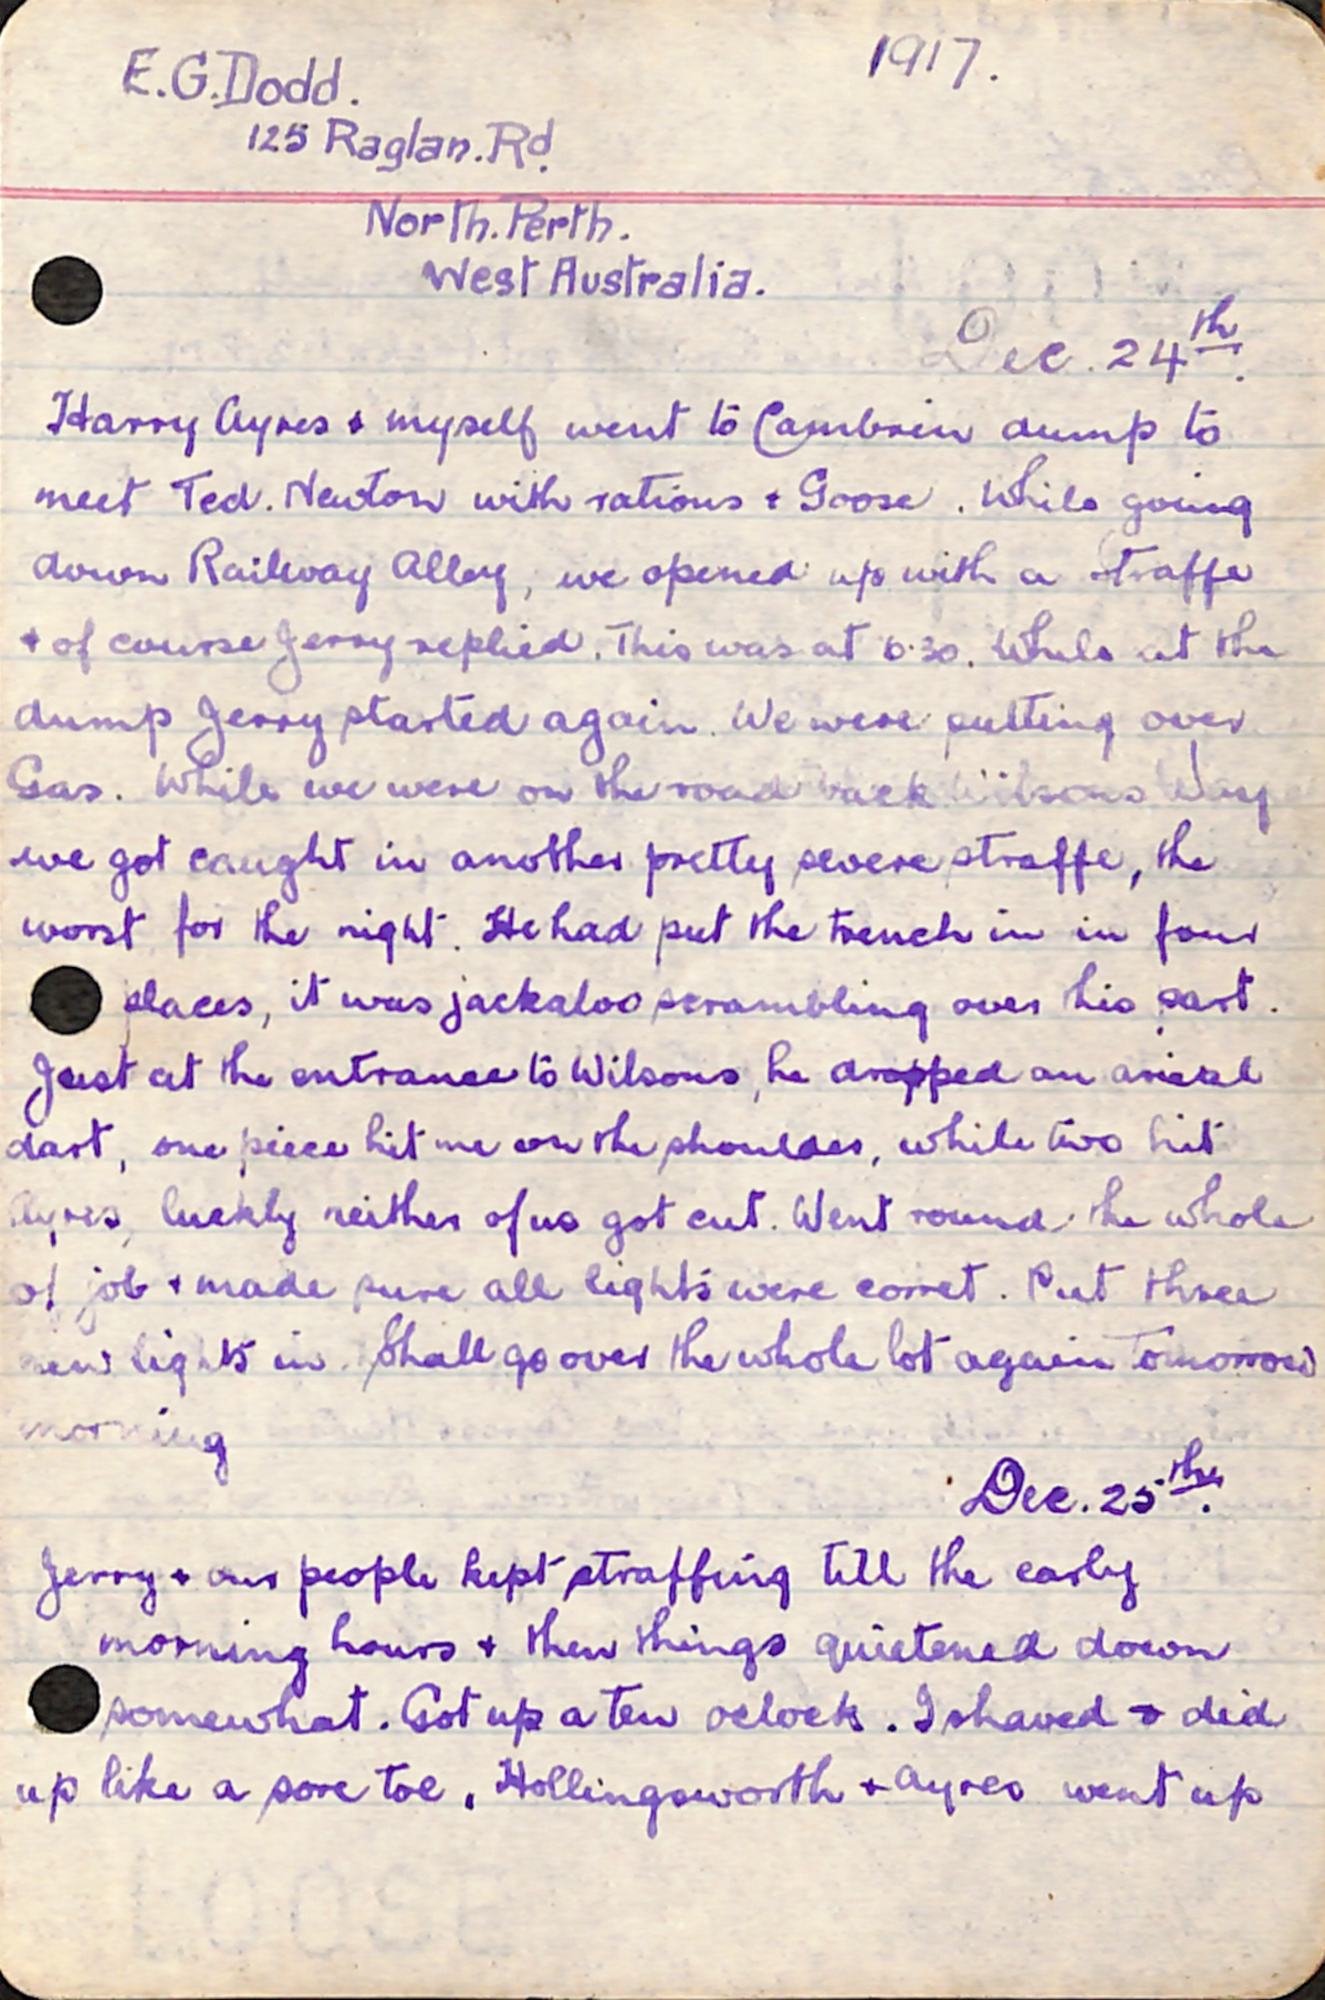 E.G.Dodd.
1917.
125 Raglan.Rd.
North.Perth.
West Australia.
Dec. 24th.
Harry Ayres + myself went to Cambrin dump to
meet Ted. Newton with rations + Goose. While going
down Railway Alley, we opened up with a straffe
+ of course Jerry replied. This was at 6.30. While at the
dump Jerry started again. We were putting over
Gas. While we were on the road back Wilsons Way
we got caught in another pretty severe straffe, the
worst for the night. He had put the trench in in four
places, it was jackaloo scrambling over his part.
Just at the entrance to Wilsons, he dropped an
dart, one piece hit me on the shoulder, while two hit
Ayres, luckly neither of us got cut. Went round the whole
of job + made sure all lights were corret. Put three
new lights in. Shall go over the whole lot again tomorrow
morning
Dec. 25th.
Jerry + our people kept straffing till the early
morning hours + then things quietened down
somewhat. Got up a ten oclock. I shaved + did
up like a sore toe. Hollingsworth + Ayres went up